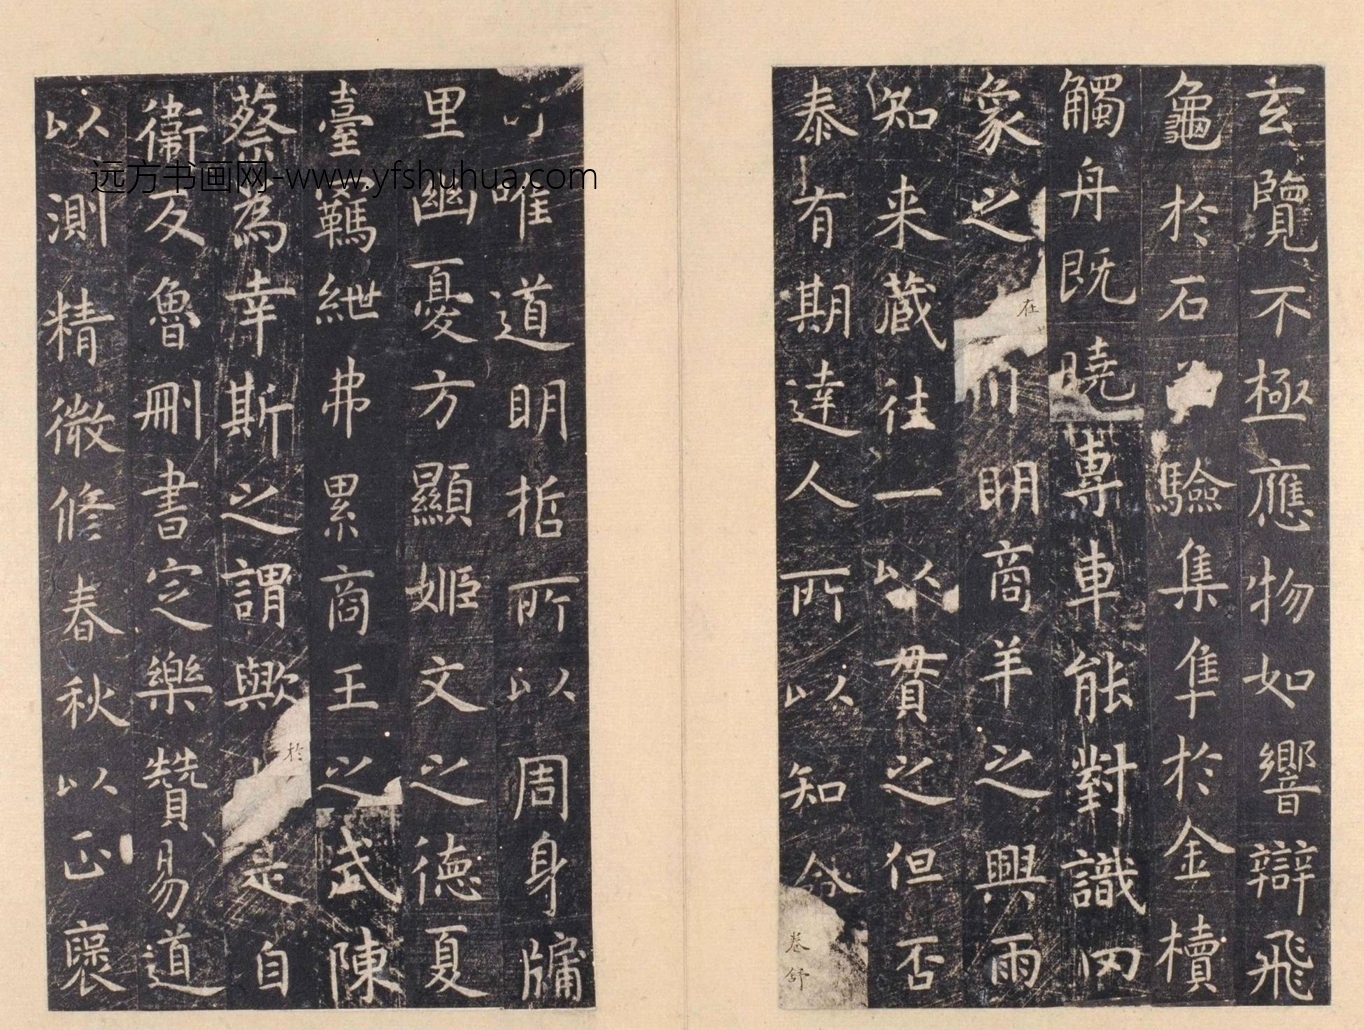 玄覽不極應物如響辯飛
龜於石驗集隼於金櫝
觸舟既曉專車能對識罔
象之在川明商羊之興雨
知来藏往一以貫之但否
泰有期達人所以知命卷舒
唯道明哲所以周身牖
里幽憂方顯姬文之德夏
臺羈紲弗累商王之武陳
蔡為幸斯之謂歟於是自
衞反魯刪書定樂贊易道
以測精微修春秋以正褒
远方书画网-www.yfshuhua.com